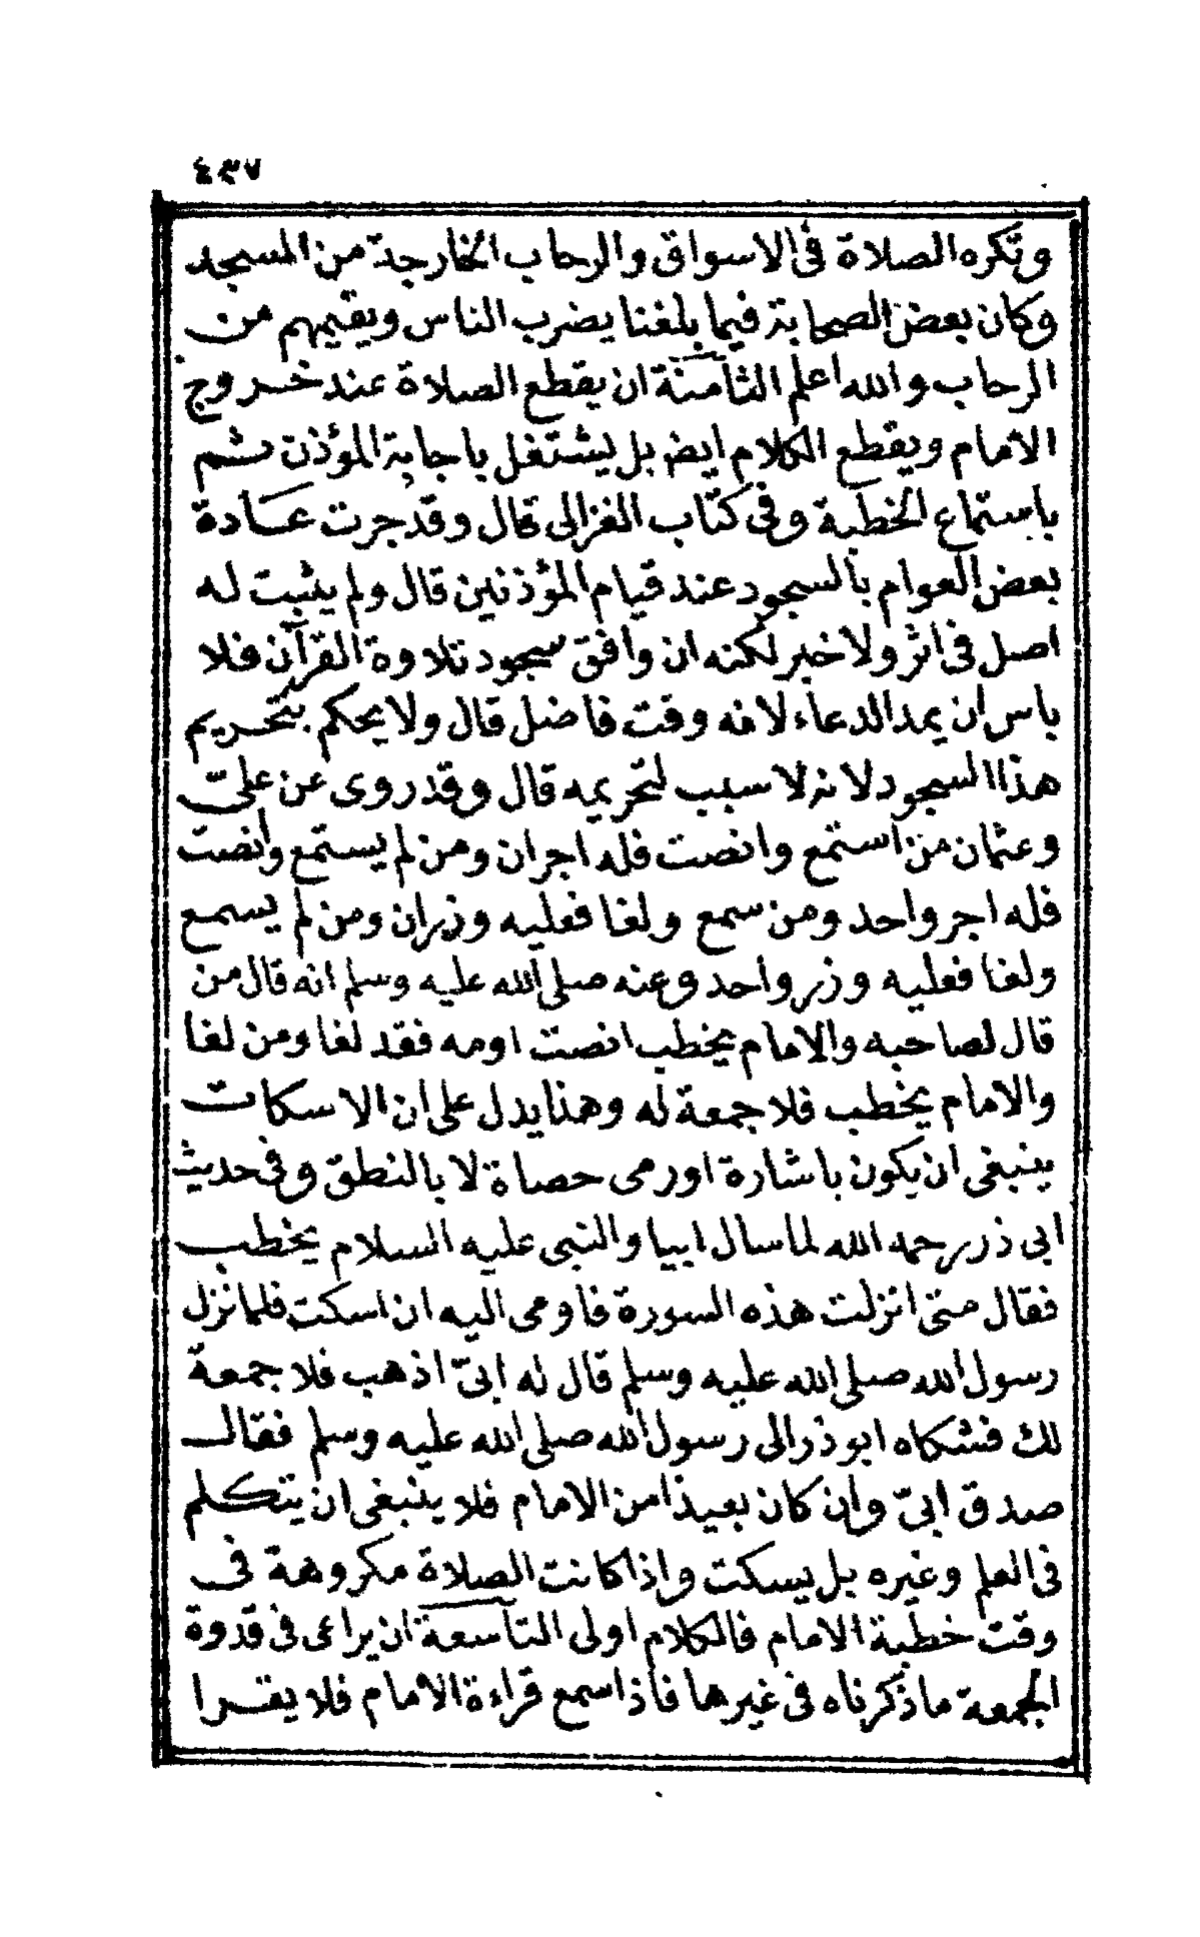 ٤٣٧
وتكره الصلاة فى الاسواق والرحاب الخارجة من المسجد
وكان بعض الصحابة فيما بلغنا يضرب الناس ويقيمهم من
الرحاب والله اعلم الثامنة ان يقطع الصلاة عند خروج
الامام ويقطع الكلام ايضا بل يشتغل باجابة المؤذن ثم
باستماع الخطبة وفى كتاب الغزالى قال وقد جرت عادة
بعض العوام بالسجود عند قيام المؤذنين قال ولم يثبت له
اصل فى اثر ولا خبر لكنه ان وافق سجود تلاوة القرآن فلا
باس ان يمد الدعاء لانه وقت فاضل قال ولا يحكم بتحريم
هذا السجود لانه لا سبب لتحريمه قال وقد روى عن علىّ
وعثمان من استمع وانصت فله اجران ومن لم يستمع وانصت
فله اجر واحد ومن سمع ولغا فعليه وزران ومن لم يسمع
ولغا فعليه وزر واحد وعنه صلى الله عليه وسلم انه قال من
قال لصاحبه والامام يخطب انصت اومه فقد لغا ومن لغا
والامام يخطب فلا جمعة له وهذا يدل على ان الاسكات
ينبغى ان يكون باشارة اورمى حصاة لا بالنطق وفى حديث
ابى ذر رحمه الله لما سال ابيا والنبى عليه السلام يخطب
فقال متى انزلت هذه السورة فاومى اليه ان اسكت فلما نزل
رسول الله صلى الله عليه وسلم قال له ابىّ اذهب فلا جمعة
لك فشكاه ابوذر الى رسول الله صلى الله عليه وسلم فقال
صدق ابىّ وان كان بعيدا من الامام فلا ينبغى ان يتكلم
فى العلم وغيره بل يسكت واذا كانت الصلاة مكروهة فى
وقت خطبة الامام فالكلام اولى التاسعة ان يراعى فى قدوة
الجمعة ماذكرناه فى غيرها فاذا سمع قراءة الامام فلا يقرا